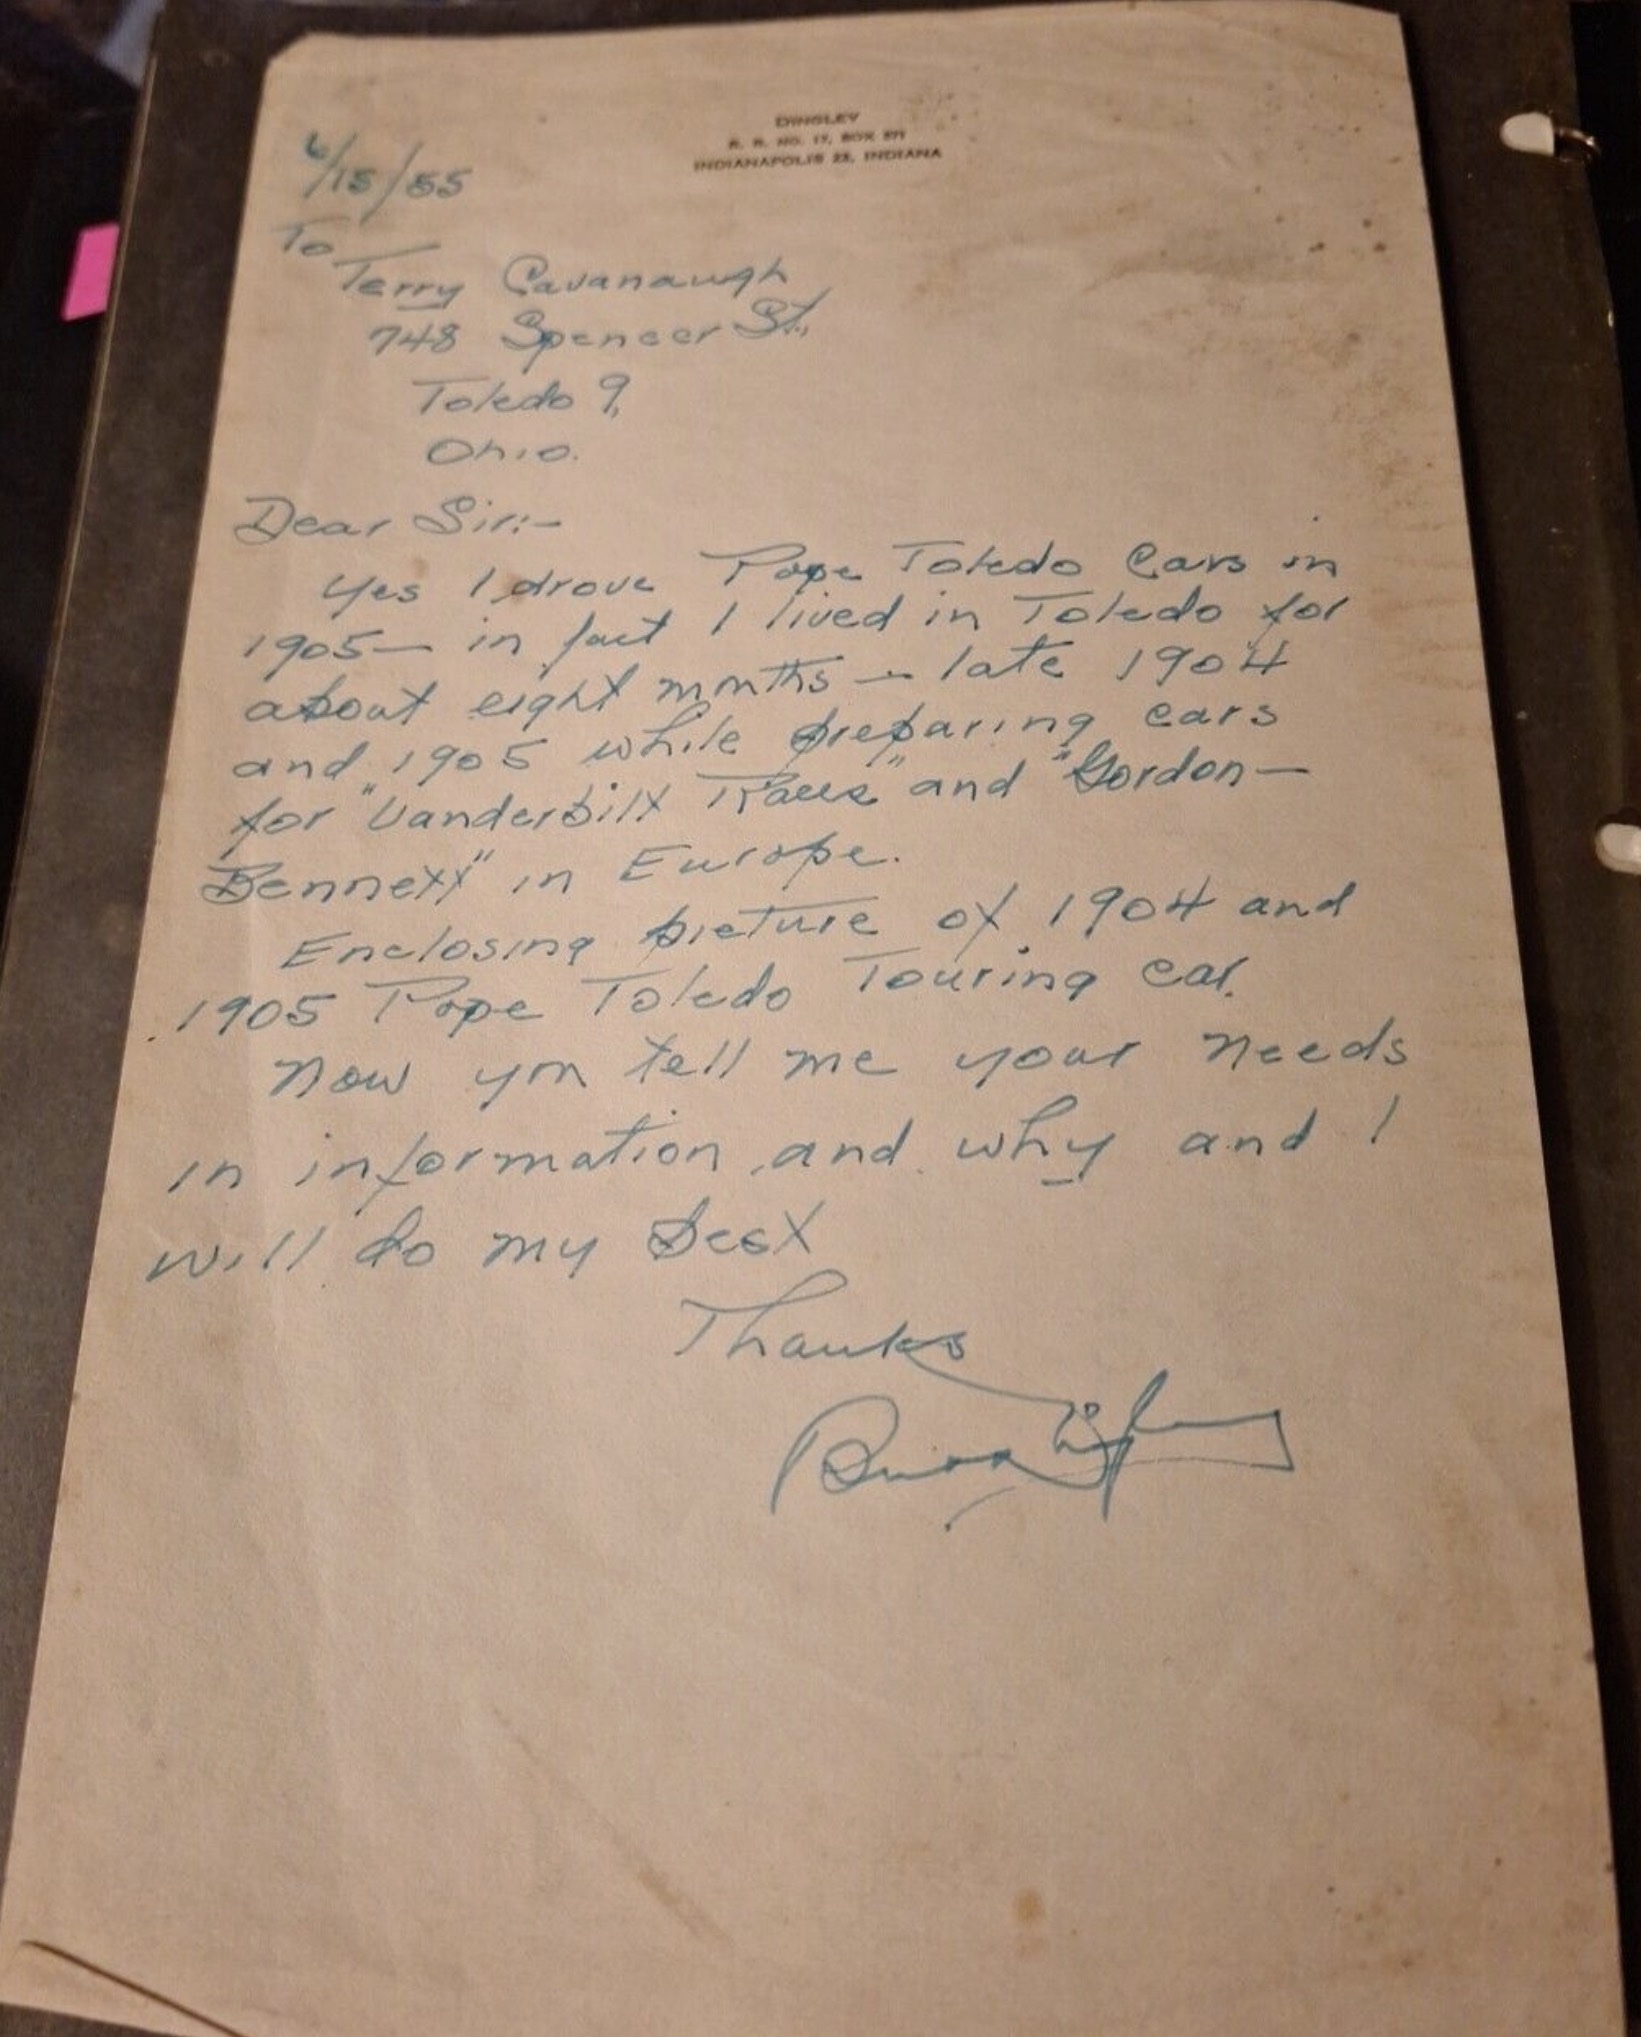 DINGLEY
R. R. NO. 17, BOX 571
INDIANAPOLIS 23, INDIANA
6/15/55
To
Terry Cavanaugh
748 Spencer St.,
Toledo 9,
Ohio.
Dear Sir:-
Yes I drove Pope Toledo Cars in
1905 — in fact I lived in Toledo for
about eight months — late 1904
and 1905 while preparing cars
for "Vanderbilt Races" and "Gordon—
Bennett" in Europe.
Enclosing picture of 1904 and
1905 Pope Toledo Touring car.
Now you tell me your needs
in information and why and I
will do my best
Thanks